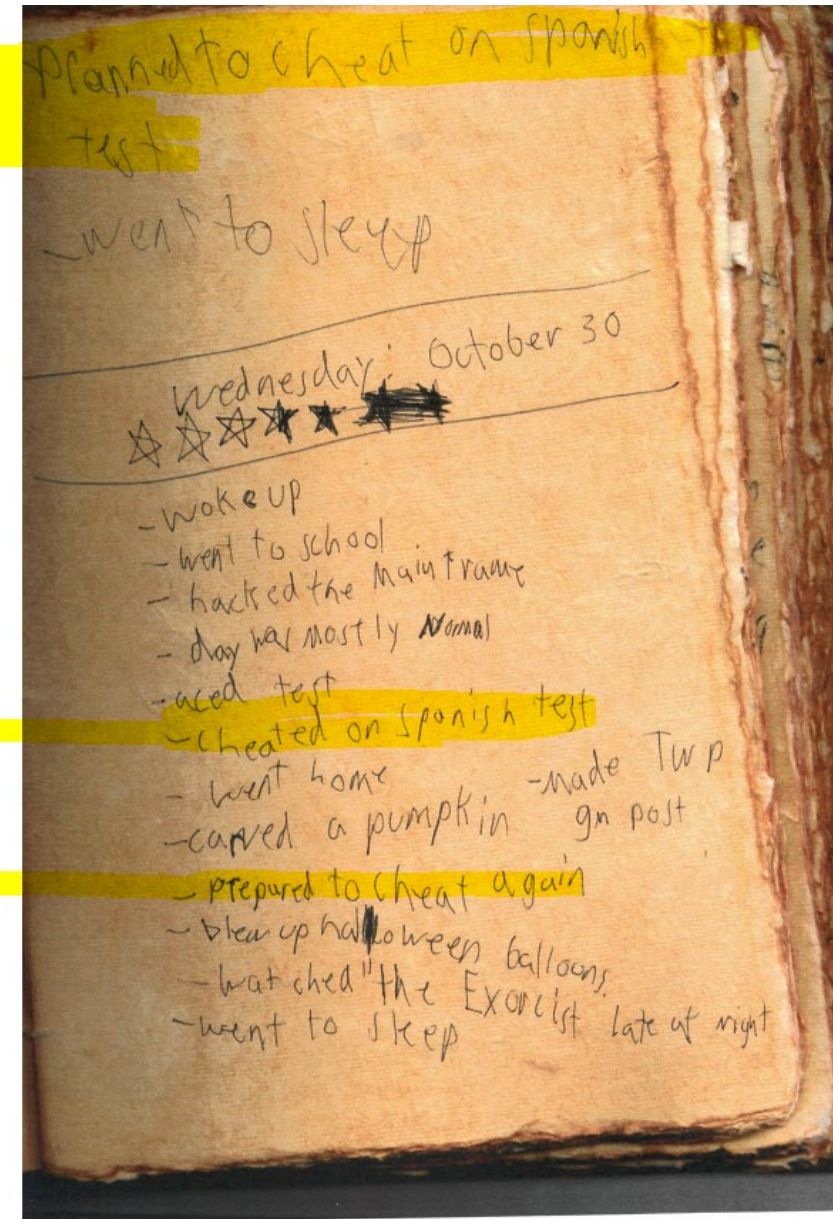 Planned to cheat on Spanish
test
-went to sleep
Wednesday: October 30
-woke up
- went to school
- hacked the Mainframe
- day was mostly Normal
-aced test
-cheated on Spanish test
- went home
-made Twp
-carved a pumpkin
gn post
- prepared to cheat again
- blew up halloween balloons.
- watched "the Exorcist late at night
-went to sleep